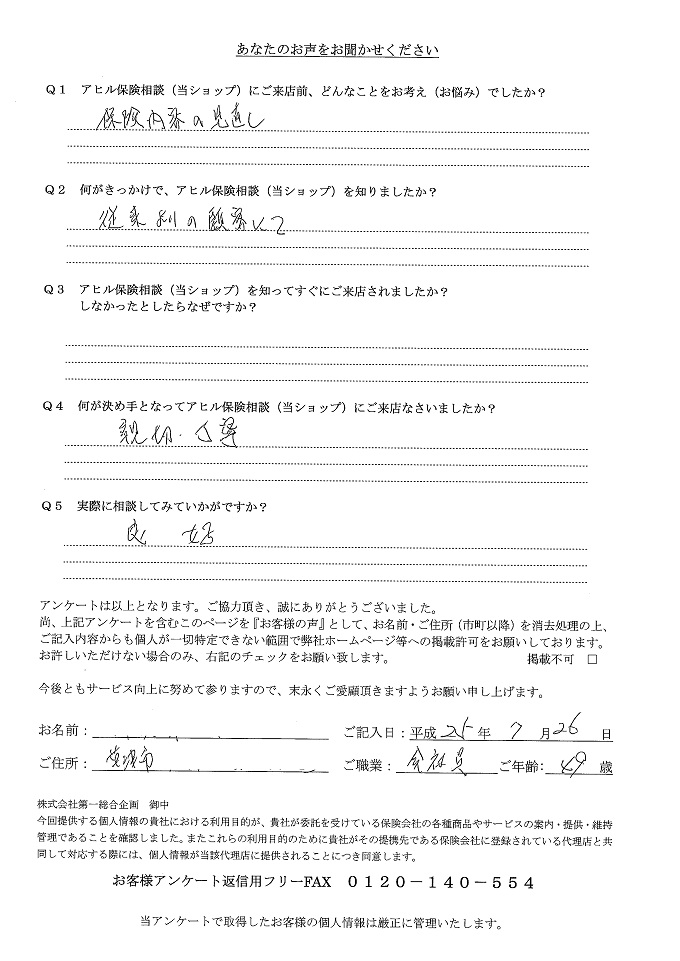 あなたのお声をお聞かせください
Q1 アヒル保険相談（当ショップ）にご来店前、どんなことをお考え（お悩み）でしたか？
保険内容の見直し
Q2 何がきっかけで、アヒル保険相談（当ショップ）を知りましたか？
従来よりの顧客にて
Q3 アヒル保険相談（当ショップ）を知ってすぐにご来店されましたか？
しなかったとしたらなぜですか？
Q4 何が決め手となってアヒル保険相談（当ショップ）にご来店なさいましたか？
親切・丁寧
Q5 実際に相談してみていかがですか？
良 好
アンケートは以上となります。ご協力頂き、誠にありがとうございました。
尚、上記アンケートを含むこのページを『お客様の声』として、お名前・ご住所（市町以降）を消去処理の上、
ご記入内容からも個人が一切特定できない範囲で弊社ホームページ等への掲載許可をお願いしております。
お許しいただけない場合のみ、右記のチェックをお願い致します。 掲載不可 □
今後ともサービス向上に努めて参りますので、末永くご愛顧頂きますようお願い申し上げます。
お名前： ご記入日：平成 25 年 7 月 26 日
ご住所： ご職業： 会社員 ご年齢： 49 歳
株式会社第一総合企画 御中
今回提供する個人情報の貴社における利用目的が、貴社が委託を受けている保険会社の各種商品やサービスの案内・提供・維持
管理であることを確認しました。またこれらの利用目的のために貴社がその提携先である保険会社に登録されている代理店と共
同して対応する際には、個人情報が当該代理店に提供されることにつき同意します。
お客様アンケート返信用フリーFAX 0120－140－554
当アンケートで取得したお客様の個人情報は厳正に管理いたします。